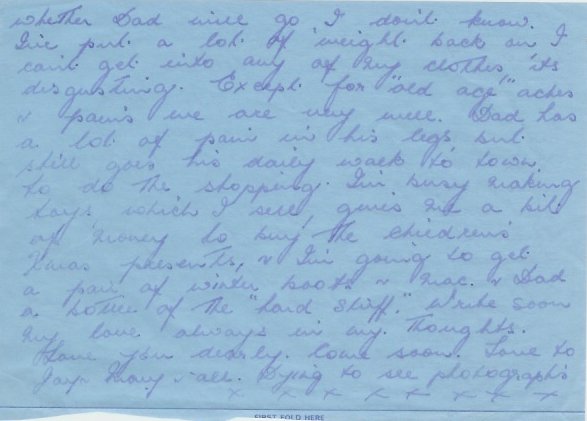 whether Dad will go I don't know.
I've put a lot of weight back on I
can't get into any of my clothes, its
disgusting. Except for "old age" aches
& pains we are very well. Dad has
a lot of pain in his legs but
still goes his daily walk to town
to do the shopping. I'm busy making
toys which I sell, gives me a bit
of money to buy the children's
Xmas presents, & I'm going to get
a pair of winter boots & mac. & Dad
a bottle of the "hard stuff." Write soon
my love always in my thoughts.
Love you dearly. Come soon. Love to
& all. Dying to see photographs
x x x x x x x x
FIRST FOLD HERE